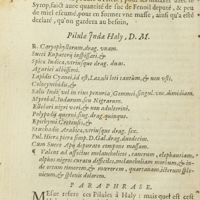 Syrop, faict auec quantité de suc de Fenoil depuré, & peu
de miel escumé, pour en former vne masse, ainsi qu'a esté
declaré, qu'on gardera au besoin,
Pilulæ Inda Haly, D. M.
R. Caryophyllorum, drag. vnam.
Succi Eupatorij inspissati, &
Spicæ Indicæ, vtriusque drag. duas.
Agarici albissimi.
Lapidis Cyanei, id est, Lazuli loti tantum, & non vsti,
Colocynthidis, &
Salis Indi vel in eius penuria, Gemmei, singul. vnc. dimidiam,
Myrobal. Indarum siue Nigrarum.
Ellebori nigri veri, & non adulterini.
Polypodij querni, sing. drag. quinque.
Epithymi Cretensis, &
Stœchados Arabica, vtriusque drag. sex.
Pul. Hieræ picra simp. D. Gal. drag. duodecim.
Cum Succo Apij depurato compone massam.
Valent ad affectus melancholicos, cancrum, elephantiam,
alphos nigros, curam difficiles, melancholicum,
timorem, & mœrorem, quartanam, ictericiam
& splenis dolorem.
PARAPHRASE.
Mesue refere ces Pilules à Haly; mais quel est cest